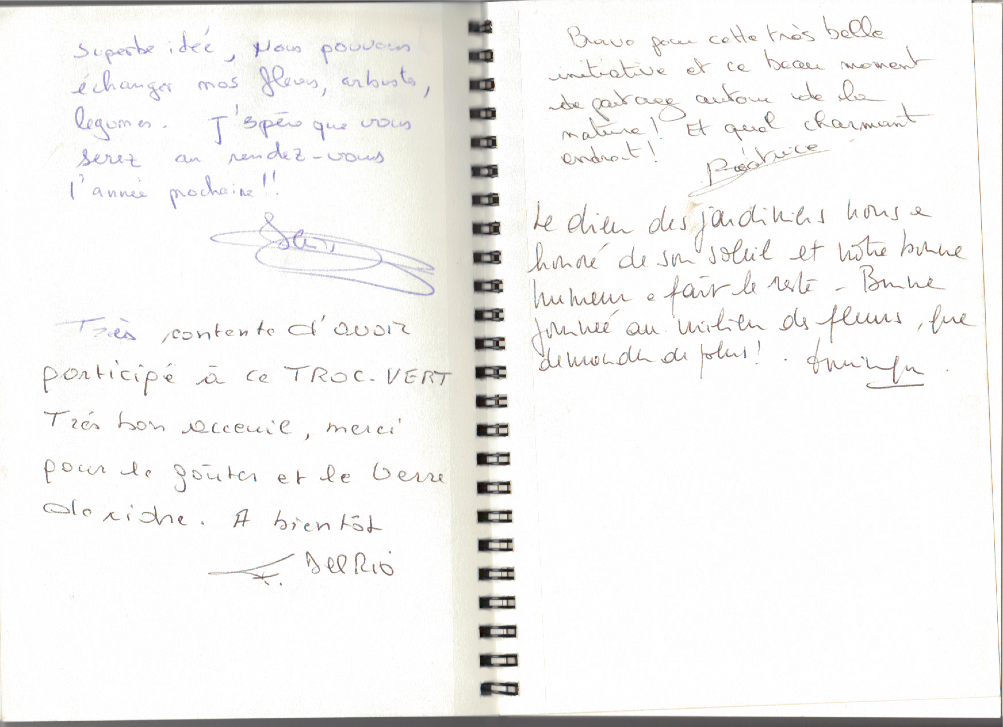 Superbe idée, Nous pouvons
échanger nos fleurs, arbustes,
légumes. J'espère que vous
serez au rendez-vous
l'année prochaine!!
Très contente d'avoir
participé à ce TROC-VERT
Très bon acceuil, merci
pour le goûter et le verre
de cidre. A bientôt
F. DELRIO
Bravo pour cette très belle
initiative et ce beau moment
de partage autour de la
nature! Et quel charmant
endroit!
Béatrice
Le dieu des jardiniers nous a
honoré de son soleil et notre bonne
humeur a fait le reste - Bonne
journée au milieu des fleurs, que
demander de plus!.